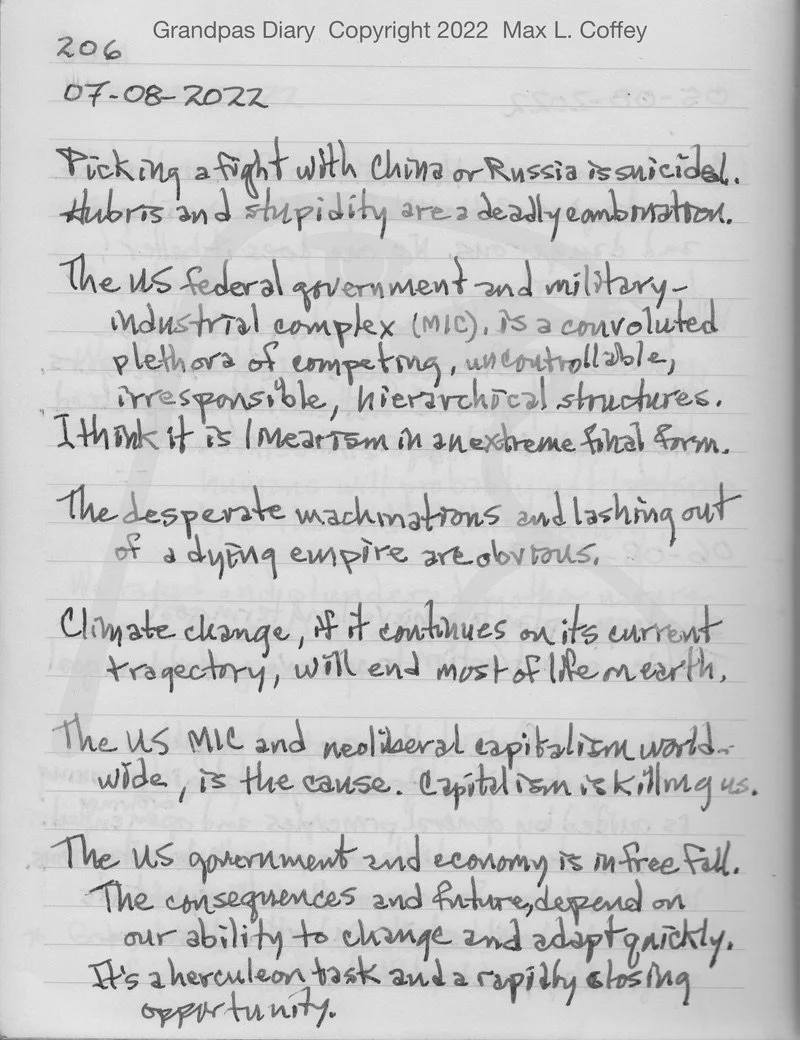 Grandpas Diary Copyright 2022 Max L. Coffey
206
07-08-2022
Picking a fight with China or Russia is suicidal.
Hubris and stupidity are a deadly combination.
The US federal government and military-
industrial complex (MIC), is a convoluted
plethora of competing, uncontrollable,
irresponsible, hierarchical structures.
I think it is linearism in an extreme final form.
The desperate machinations and lashing out
of a dying empire are obvious.
Climate change, if it continues on its current
tragectory, will end most of life on earth.
The US MIC and neoliberal capitalism world-
wide, is the cause. Capitalism is killing us.
The US government and economy is in free fall.
The consequences and future, depend on
our ability to change and adapt quickly.
It's a herculeon task and a rapidly closing
opportunity.